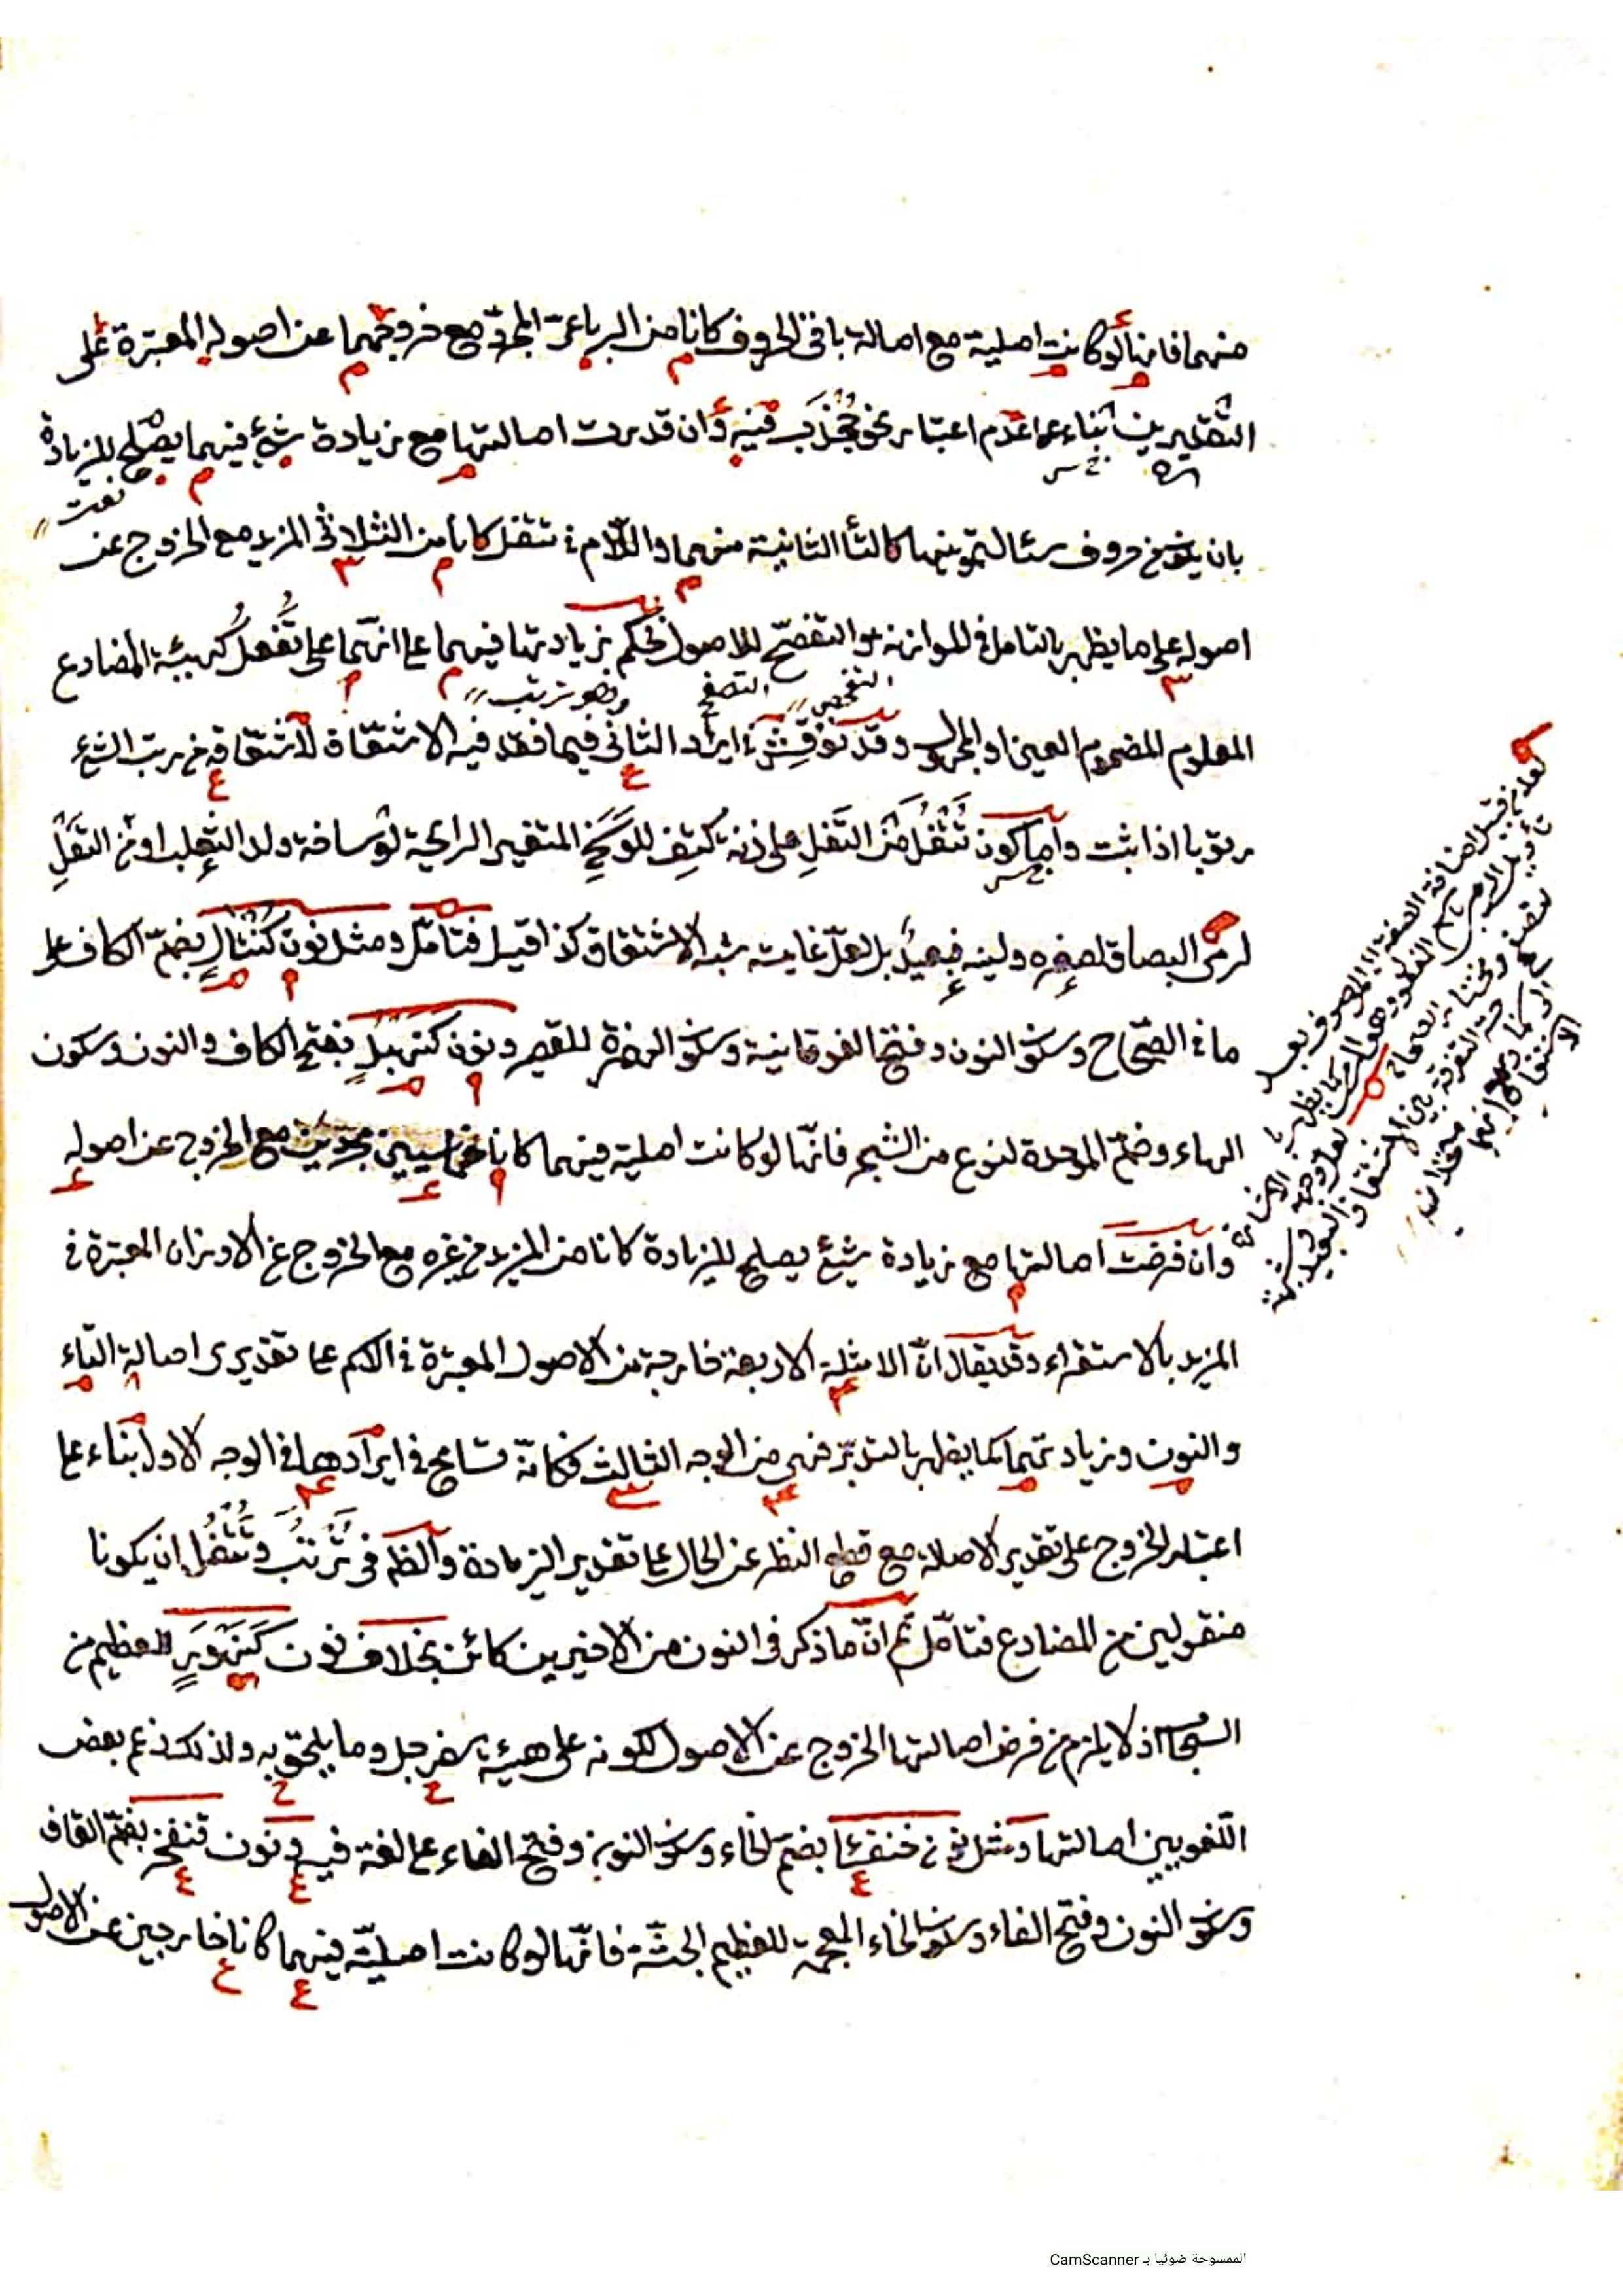 منهما فانها لو كانت اصلية مع اصالة باقى الحروف كانا من الرباعى المجرد مع خروجهما عن اصوله المعتبرة على
التقديرين بناء على عدم اعتبار نحو جُخْدَب فيه وان قدرت اصالتها مع زيادة شئ فيهما يصلح للزيادة
بان يؤخذ من حروف سئالتمونيها كالتا الثانية منهما واللام فى تتفل كانا من الثلاثى المزيد مع الخروج عن
اصوله على ما يظهر بالتامل فى الموازنة والتفصح للاصول فحكم بزيادتها فيهما على انهما على تَفْعُل كهيئة المضارع
المعلوم المضموم العين او المجهول وقد نوقش فى ايراد الثانى فيما فقد فيه الاشتقاق لاشتقاقه من رتب الشئ
رتوبا اذا ثبت واما كون تتفل من التفل على زنة كَتِف للوسخ المتغير الرائحة لوساخة ولد الثعلب او من التفل
لرمى البصاق لصغره ولينه فبعيد بل لعل غايته شبه الاشتقاق كذا قيل فتامل ومثل نون كُنْتَال بضم الكاف على
ما فى الصحاح وسكون النون وفتح الفوقانية وسكون الهمزة للقصير ونون كَنَهْبُل بفتح الكاف والنون وسكون
الهاء وضم الموحدة لنوع من الشجر فانها لو كانت اصلية فيهما كانا خماسيين مجردين مع الخروج عن اصوله
وان فرضت اصالتها مع زيادة شئ يصلح للزيادة كانا من المزيد من غيره مع الخروج عن الاوزان المعتبرة فى
المزيد بالاستقراء وقد يقال ان الامثلة الاربعة خارجة عن الاصول المعتبرة فى الكم على تقديرى اصالة التاء
والنون وزيادتهما كما يظهر بالتدبر فهى من الوجه الثالث فكانه تسامح فى ايرادها فى الوجه الاول بناء على
اعتبار الخروج على تقدير الاصلة مع قطع النظر عن الحال على تقدير الزيادة والظم فى تَرْتُب وتَتْفُل ان يكونا
منقولين من المضارع فتامل ثم ان ما ذكر فى النون من الاخيرين كائن بخلاف نون كَنَهْوَر للعظيم من
السحاب اذ لا يلزم من فرض اصالتها الخروج عن الاصول لكونه على هيئة سفرجل وما يلحق به ولذلك زعم بعض
اللغويين اصالتها ومثل نون خنفسا بضم الخاء وسكون النون وفتح الفاء على لغة فيه ونون قنفخر بضم القاف
وسكون النون وفتح الفاء وسكون الخاء المعجمة للعظيم الجثة فانها لو كانت اصلية فيهما كانا خارجين عن الاصول
نعت
التفحص
التصفح
وهو ترتب
الممسوحة ضوئيا بـ CamScanner